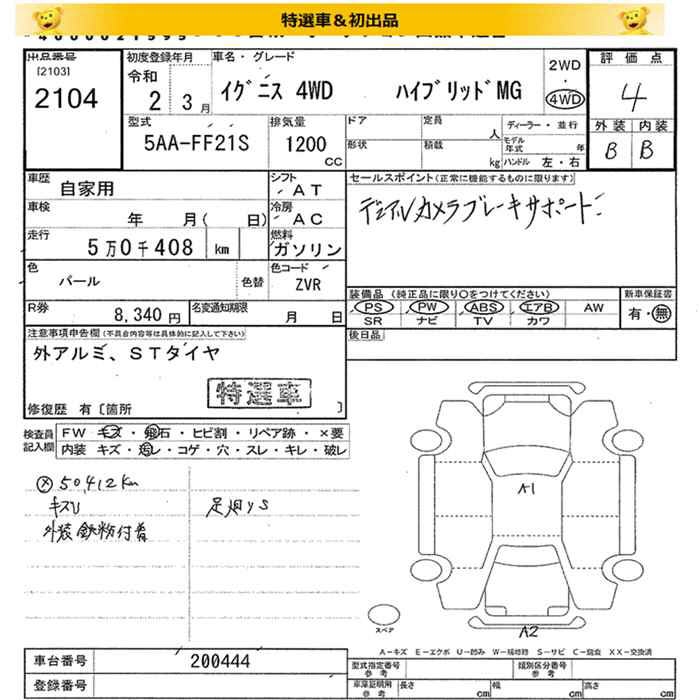 特選車＆初出品
出品番号
[2103]
2104
初度登録年月
令和
2 3月
車名・グレード
イグニス 4WD ハイブリッドMG
2WD
・
4WD
評価点
4
外装 内装
B B
型式
5AA-FF21S
排気量
1200
CC
ドア
定員
人
ディーラー・並行
形状
積載
kg
モデル年式
年
ハンドル 左・右
車歴
自家用
シフト
AT
セールスポイント(正常に機能するものに限ります)
デュアルカメラブレーキサポート
車検
年 月( 日)
冷房
AC
走行
5万0千408 km
燃料
ガソリン
色
パール
色替
色コード
ZVR
装備品 (純正品に限り○をつけてください)
新車保証書
PS PW ABS エアB AW
有・無
SR ナビ TV カワ
R券
8,340円
名変通知期限
月 日
後日品
注意事項申告欄(不具合内容等は具体的に記入して下さい)
外アルミ、STタイヤ
特選車
修復歴 有〔箇所 〕
検査員
記入欄
FW キズ・飛石・ヒビ割・リペア跡・×要
内装 キズ・汚レ・コゲ・穴・スレ・キレ・破レ
50,412km
キズU
外装鉄粉付着
足廻りS
A1
A2
スペア
A－キズ E－エクボ U－凹み W－補修跡 S－サビ C－腐食 XX－交換済
車台番号
200444
登録番号
型式指定番号
参考
類別区分番号
参考
車庫証明用
参考
長さ cm
幅 cm
高さ cm